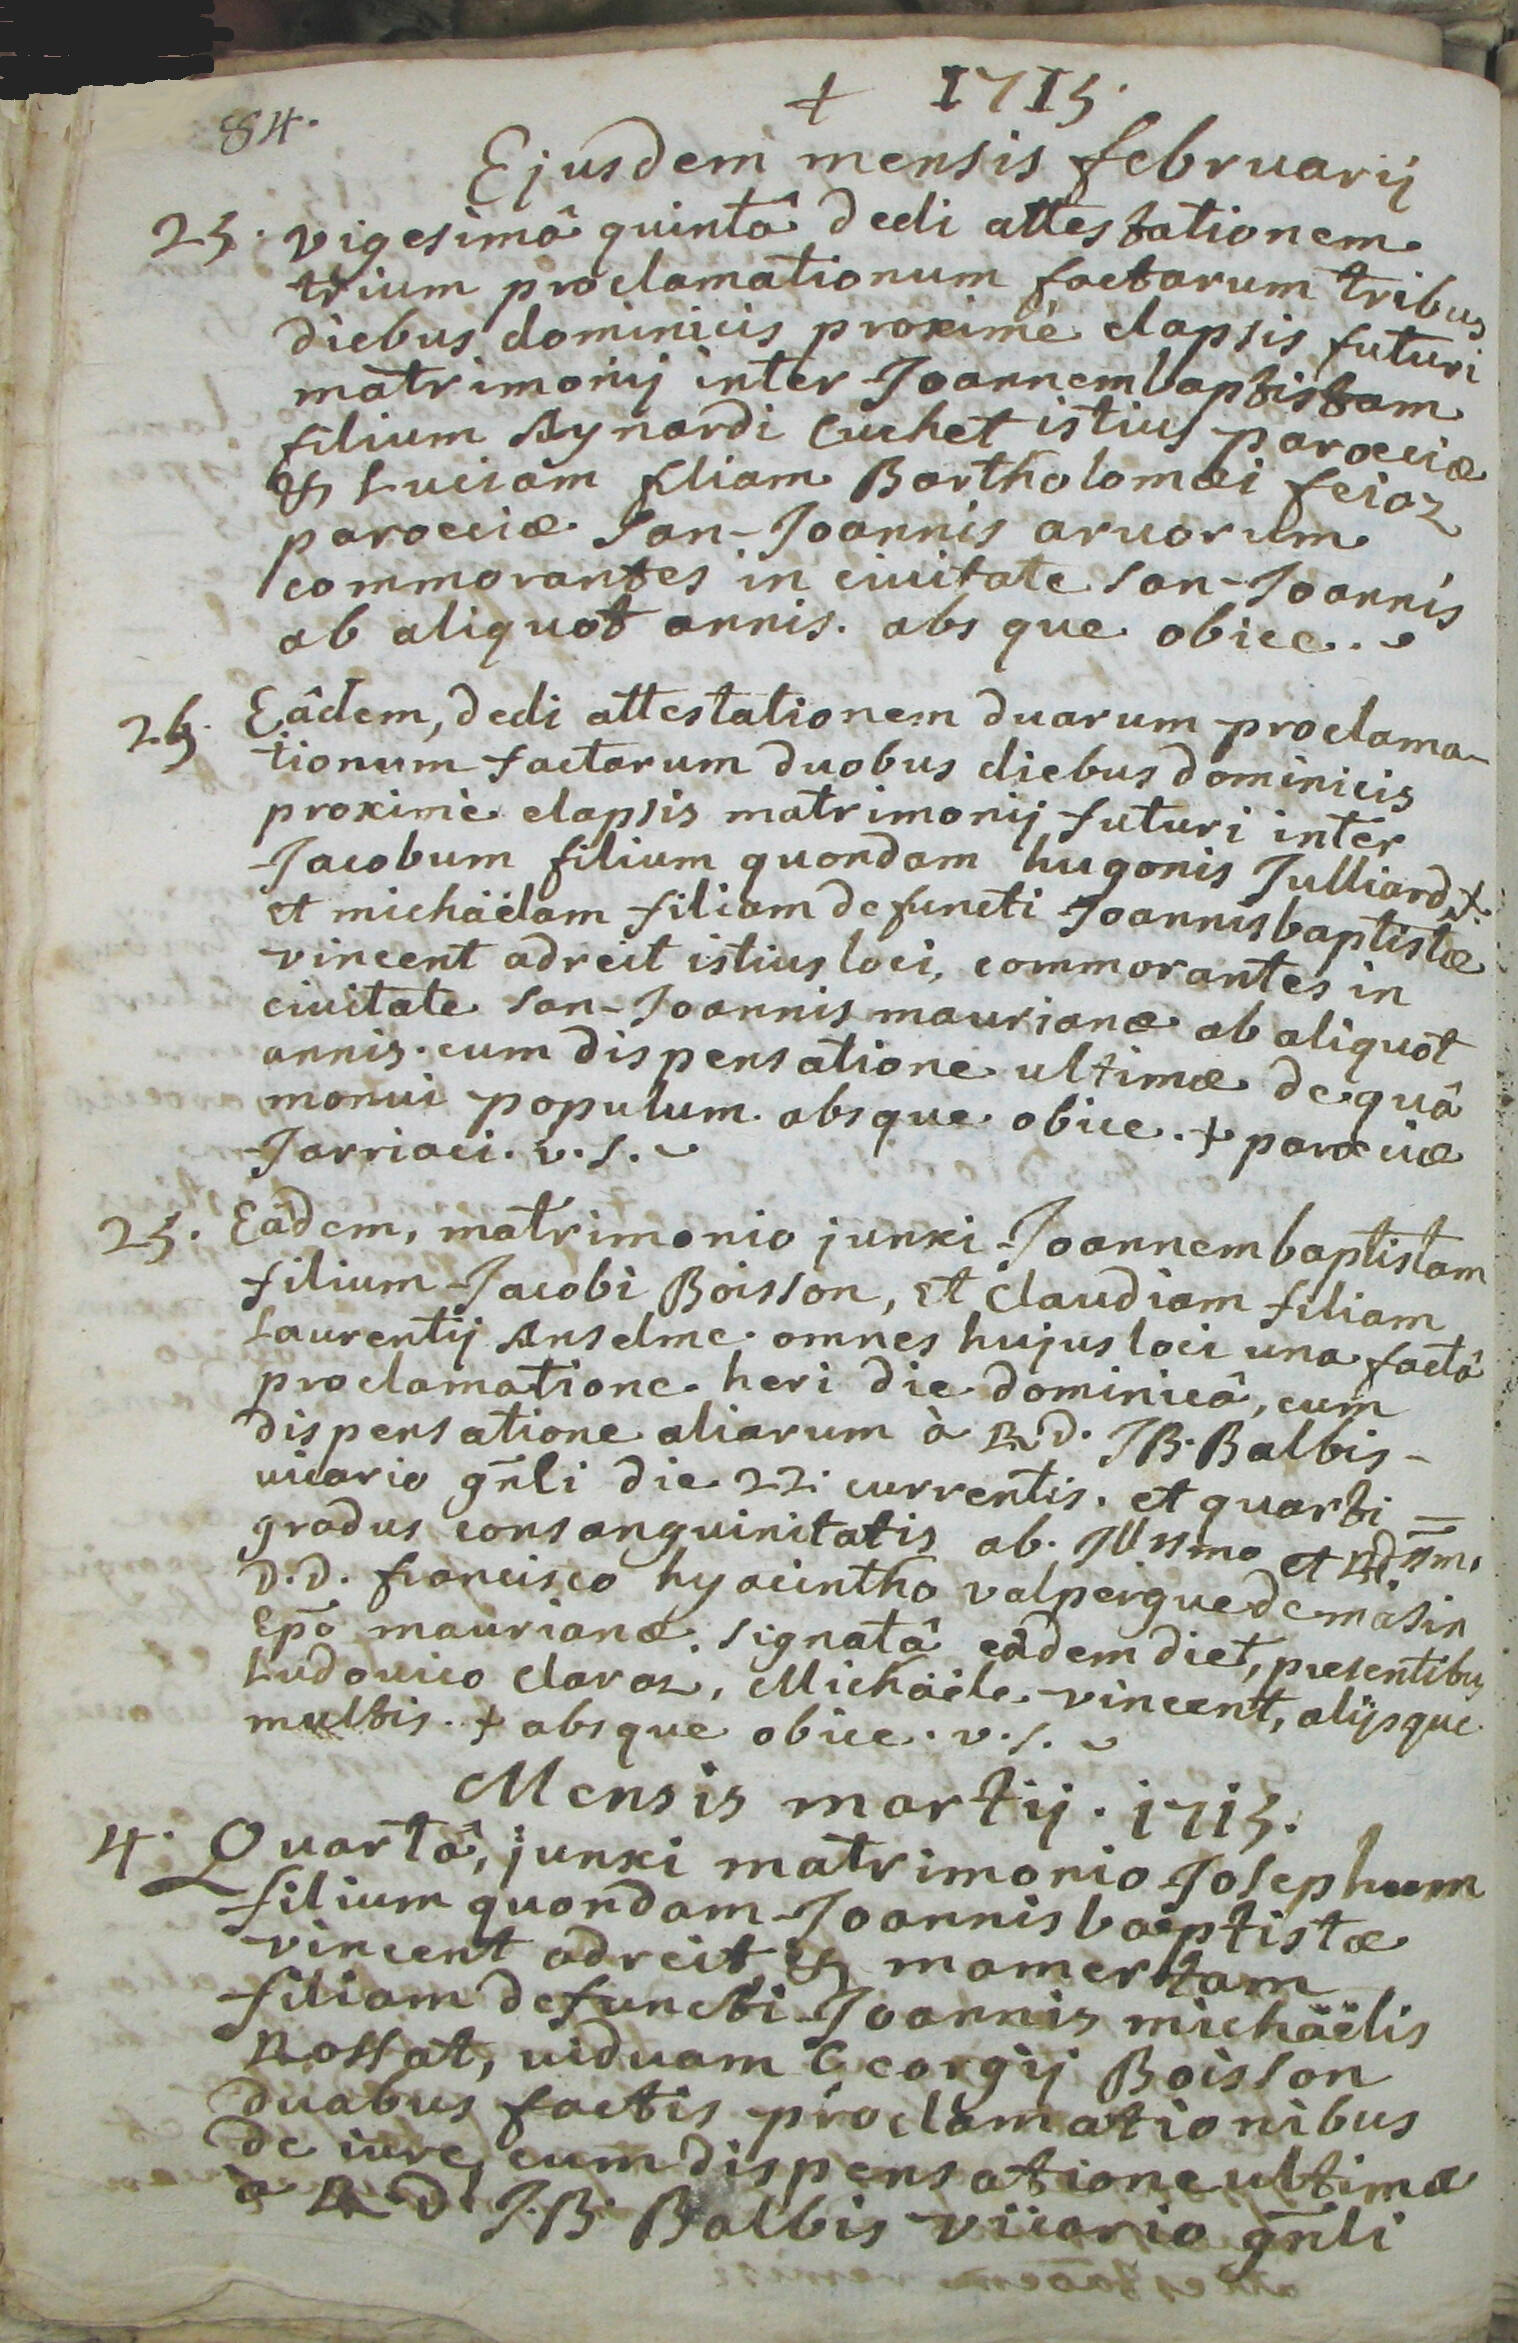 84.
+ 1715.
Ejusdem mensis februarij
25. vigesimâ quintâ dedi attestationem
trium proclamationum factarum tribus
diebus dominicis proximè elapsis futuri
matrimonij inter Joannembaptistam
filium Aynardi Cuchet istius parœciæ
& Luciam filiam Bartholomæi feiaz
parœciæ San-Joannis aruorum
commorantes in ciuitate San-Joannis
ab aliquot annis. absque obice..
25. Eâdem, dedi attestationem duarum proclama-
tionum factarum duobus diebus dominicis
proximè elapsis matrimonij futuri inter
Jacobum filium quondam hugonis Julliard, +
et michäelam filiam defuncti Joannisbaptistæ
vincent adreit istius loci, commorantes in
ciuitate San-Joannis maurianæ ab aliquot
annis. cum dispensatione ultimæ de quâ
monui populum. absque obice. + parœciæ
Jarriaci. v.s.
25. Eâdem, matrimonio junxi Joannembaptistam
filium Jacobi Boisson, et Claudiam filiam
Laurentij Anselme. omnes hujus loci una factâ
proclamatione heri die dominicâ, cum
dispensatione aliarum à R.D. JB. Balbis
uicario gñli die 22. currentis. et quarti
gradus consanguinitatis ab. Illssmo et Rdssmo
D.D. francisco hyacintho valpergue de masin
Epõ maurianæ. signatâ eâdem die +, presentibus
Ludouico claraz, Michäele vincent, alijsque
multis. + absque obice. v.s.
Mensis martij. 1715.
4. Quartâ, junxi matrimonio Josephum
filium quondam Joannisbaptistæ
vincent adreit & mamertam
filiam defuncti Joannis michäelis
Rossat, uiduam Georgij Boisson
duabus factis proclamationibus
de iure, cum dispensatione ultimæ
à R.D. J.B. Balbis vicario gñli